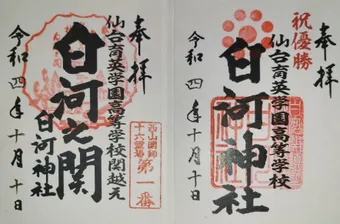 奉拝
仙台育英学園高等学校関越え
白河之関
白河神社
令和四年十月十日
第一番
祝優勝
奉拝
仙台育英学園高等学校
白河神社
令和四年十月十日